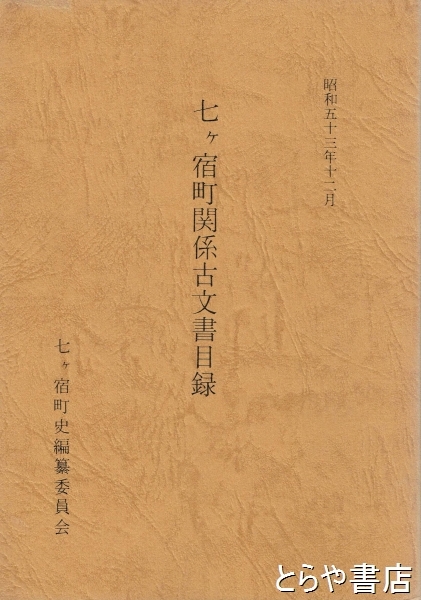 昭和五十三年十二月
七ヶ宿町関係古文書目録
七ヶ宿町史編纂委員会
とらや書店